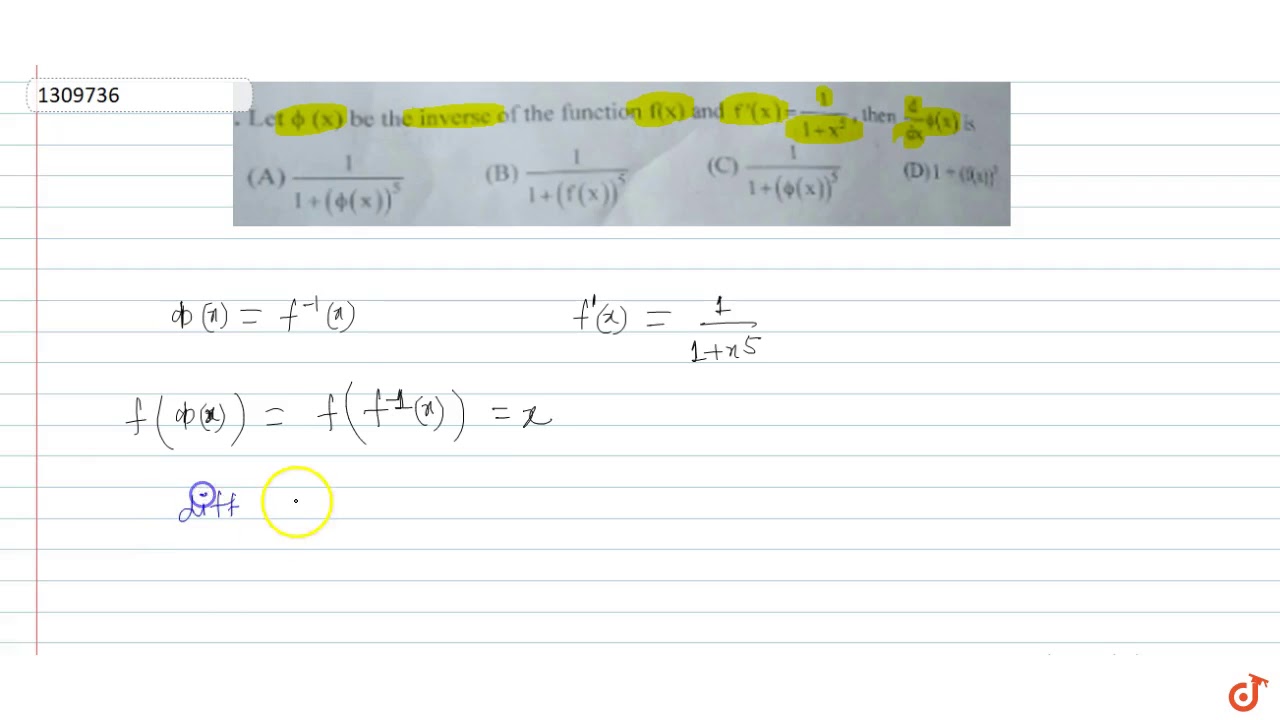 1309736
. Let ϕ (x) be the inverse of the function f(x) and f'(x)= 1/(1+x⁵), then d/dx ϕ(x) is
(A) 1/(1+(ϕ(x))⁵) (B) 1/(1+(f(x))⁵) (C) 1/(1+(ϕ(x))⁵) (D) 1 + (f(x))
ϕ(x) = f⁻¹(x) f'(x) = 1/(1+x5)
f(ϕ(x)) = f(f⁻¹(x)) = x
diff